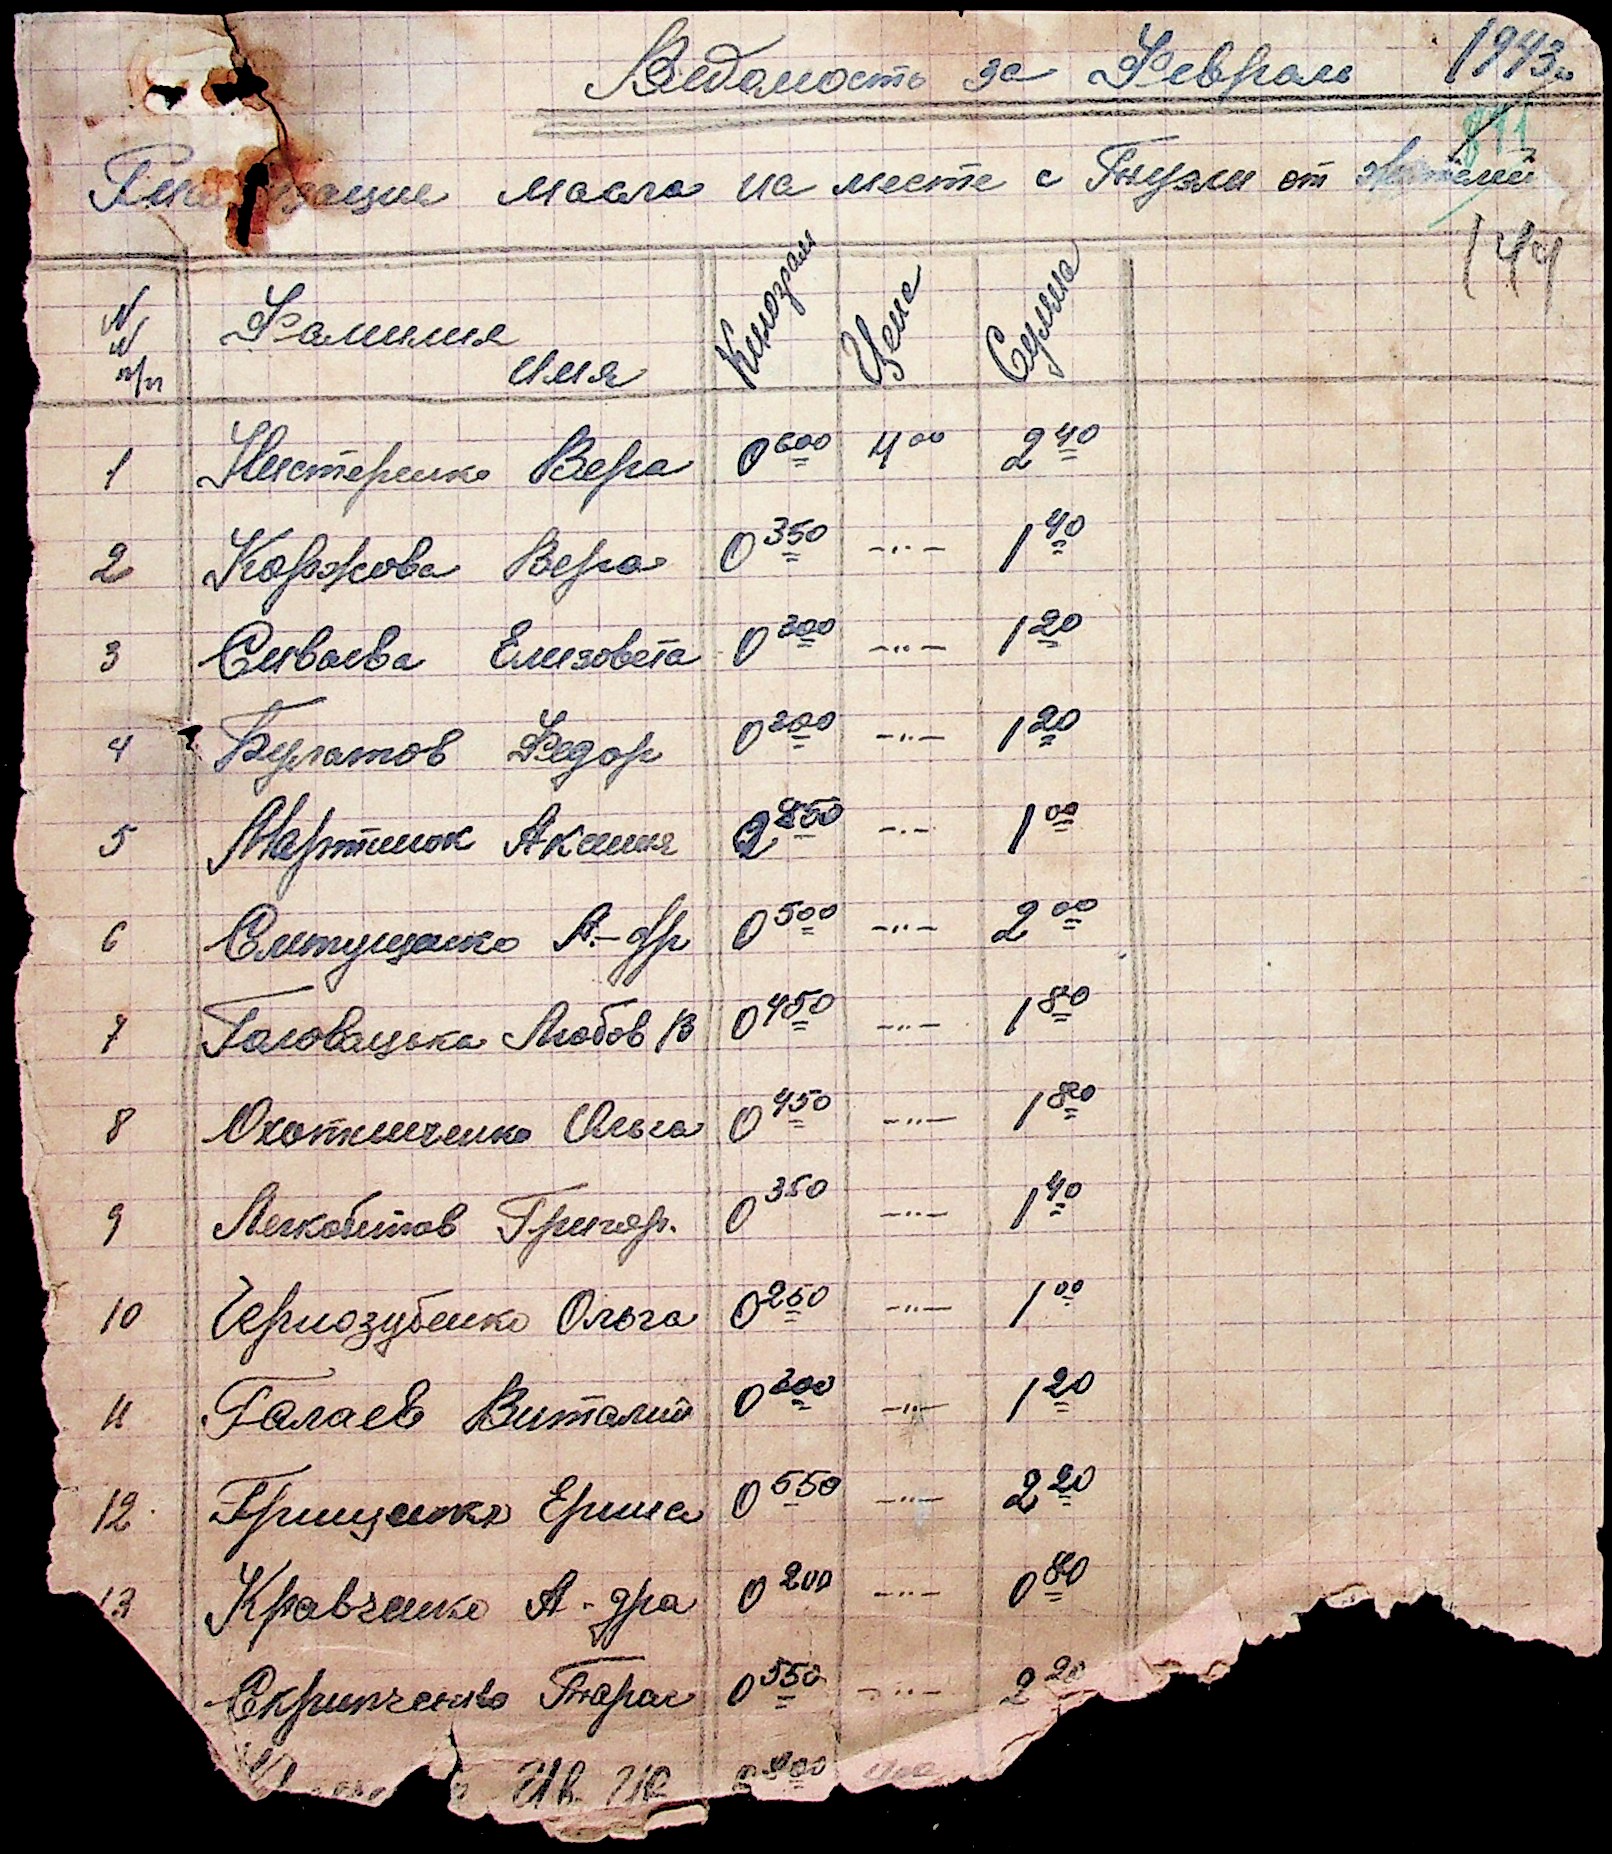 Ведомость за Феврали 1943г
811
масла на месте с
144
N/N п/п Фамилия имя Килограм Цена Сумма
1 Нистеренко Вера 0 600 4 00 2 40
2 Коржова Вера 0 350 -..- 1 40
3 Сиваева Елизовета 0 300 -..- 1 20
4 Булатов Федор 0 300 -..- 1 20
5 Мартинюк Аксиния 250 -.- 1 00
6 А-др 0 500 -..- 2 00
7 Головацька Любов В 0 450 -..- 1 80
8 Охотниченко Ольга 0 450 -..- 1 80
9 Легкобитов Григор. 0 350 -..- 1 40
10 Чернозубенко Ольга 0 250 -..- 1 00
11 Галаев Виталий 0 300 -..- 1 20
12 Грищенко Ерина 0 550 -..- 2 20
13 Кравченко А-дра 0 200 -..- 0 80
Скрипченко Тарас 0 550 -..- 2 20
Ив. Ив